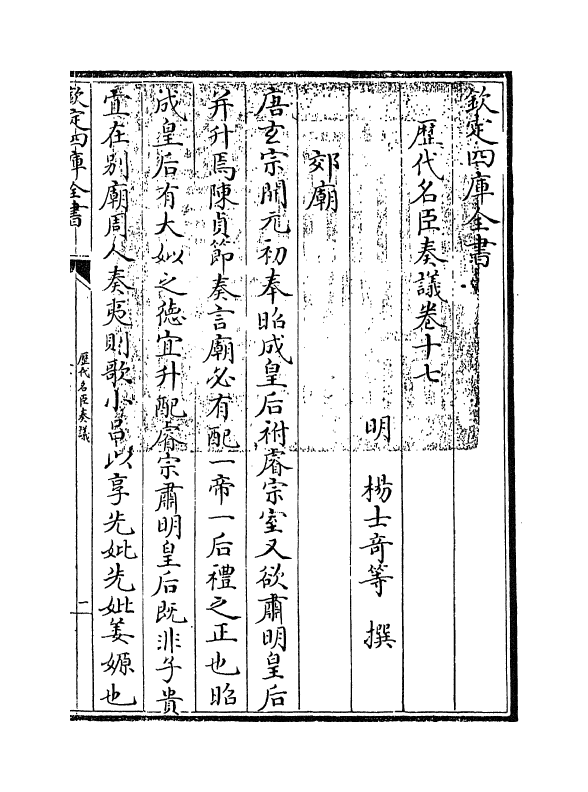 欽定四庫全書
歷代名臣奏議卷十七
明 楊士奇等 撰
郊廟
唐玄宗開元初奉昭成皇后祔睿宗室又欲肅明皇后
并升焉陳貞節奏言廟必有配一帝一后禮之正也昭
成皇后有大姒之德宜升配睿宗肅明皇后既非子貴
宜在别廟周人奏夷則歌小吕以享先妣先妣姜嫄也
欽定四庫全書
歷代名臣奏議
一